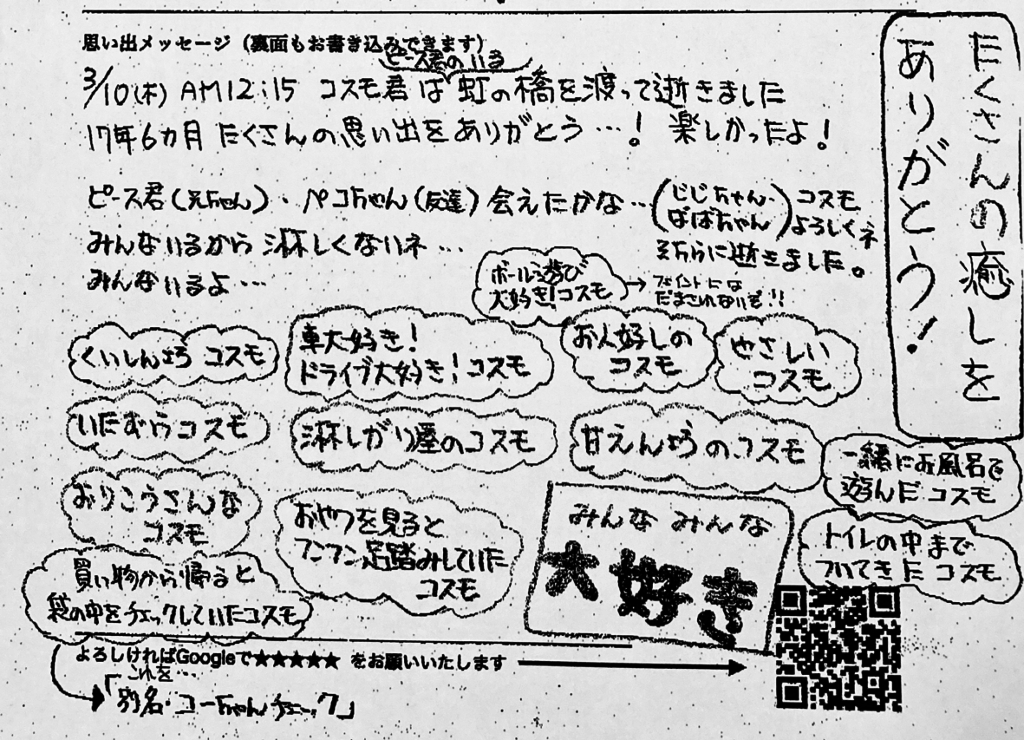 思い出メッセージ（裏面もお書き込みできます）
ピース君のいる
3/10(木) AM12:15 コスモ君は虹の橋を渡って逝きました
17年6カ月 たくさんの思い出をありがとう…！ 楽しかったよ！
ピース君（兄ちゃん）・ペコちゃん（友達）会えたかな…（じじちゃん・ばばちゃん）コスモよろしくネ
みんないるから淋しくないネ…
そちらに逝きました。
みんないるよ…
たくさんの癒しを
ありがとう！
ボール遊び
大好き！コスモ
→フェイントには
だまされないぞ！！
くいしんぼう コスモ
車大好き！
ドライブ大好き！コスモ
お人好しの
コスモ
やさしい
コスモ
いたずらコスモ
淋しがり屋のコスモ
甘えんぼうのコスモ
一緒にお風呂で
遊んだコスモ
おりこうさんな
コスモ
おやつを見ると
フンフン足踏みしていた
コスモ
みんなみんな
大好き
トイレの中まで
ついてきたコスモ
買い物から帰ると
袋の中をチェックしていたコスモ
よろしければGoogleで★★★★★ をお願いいたします
これを…
「別名・コーちゃんチェック」